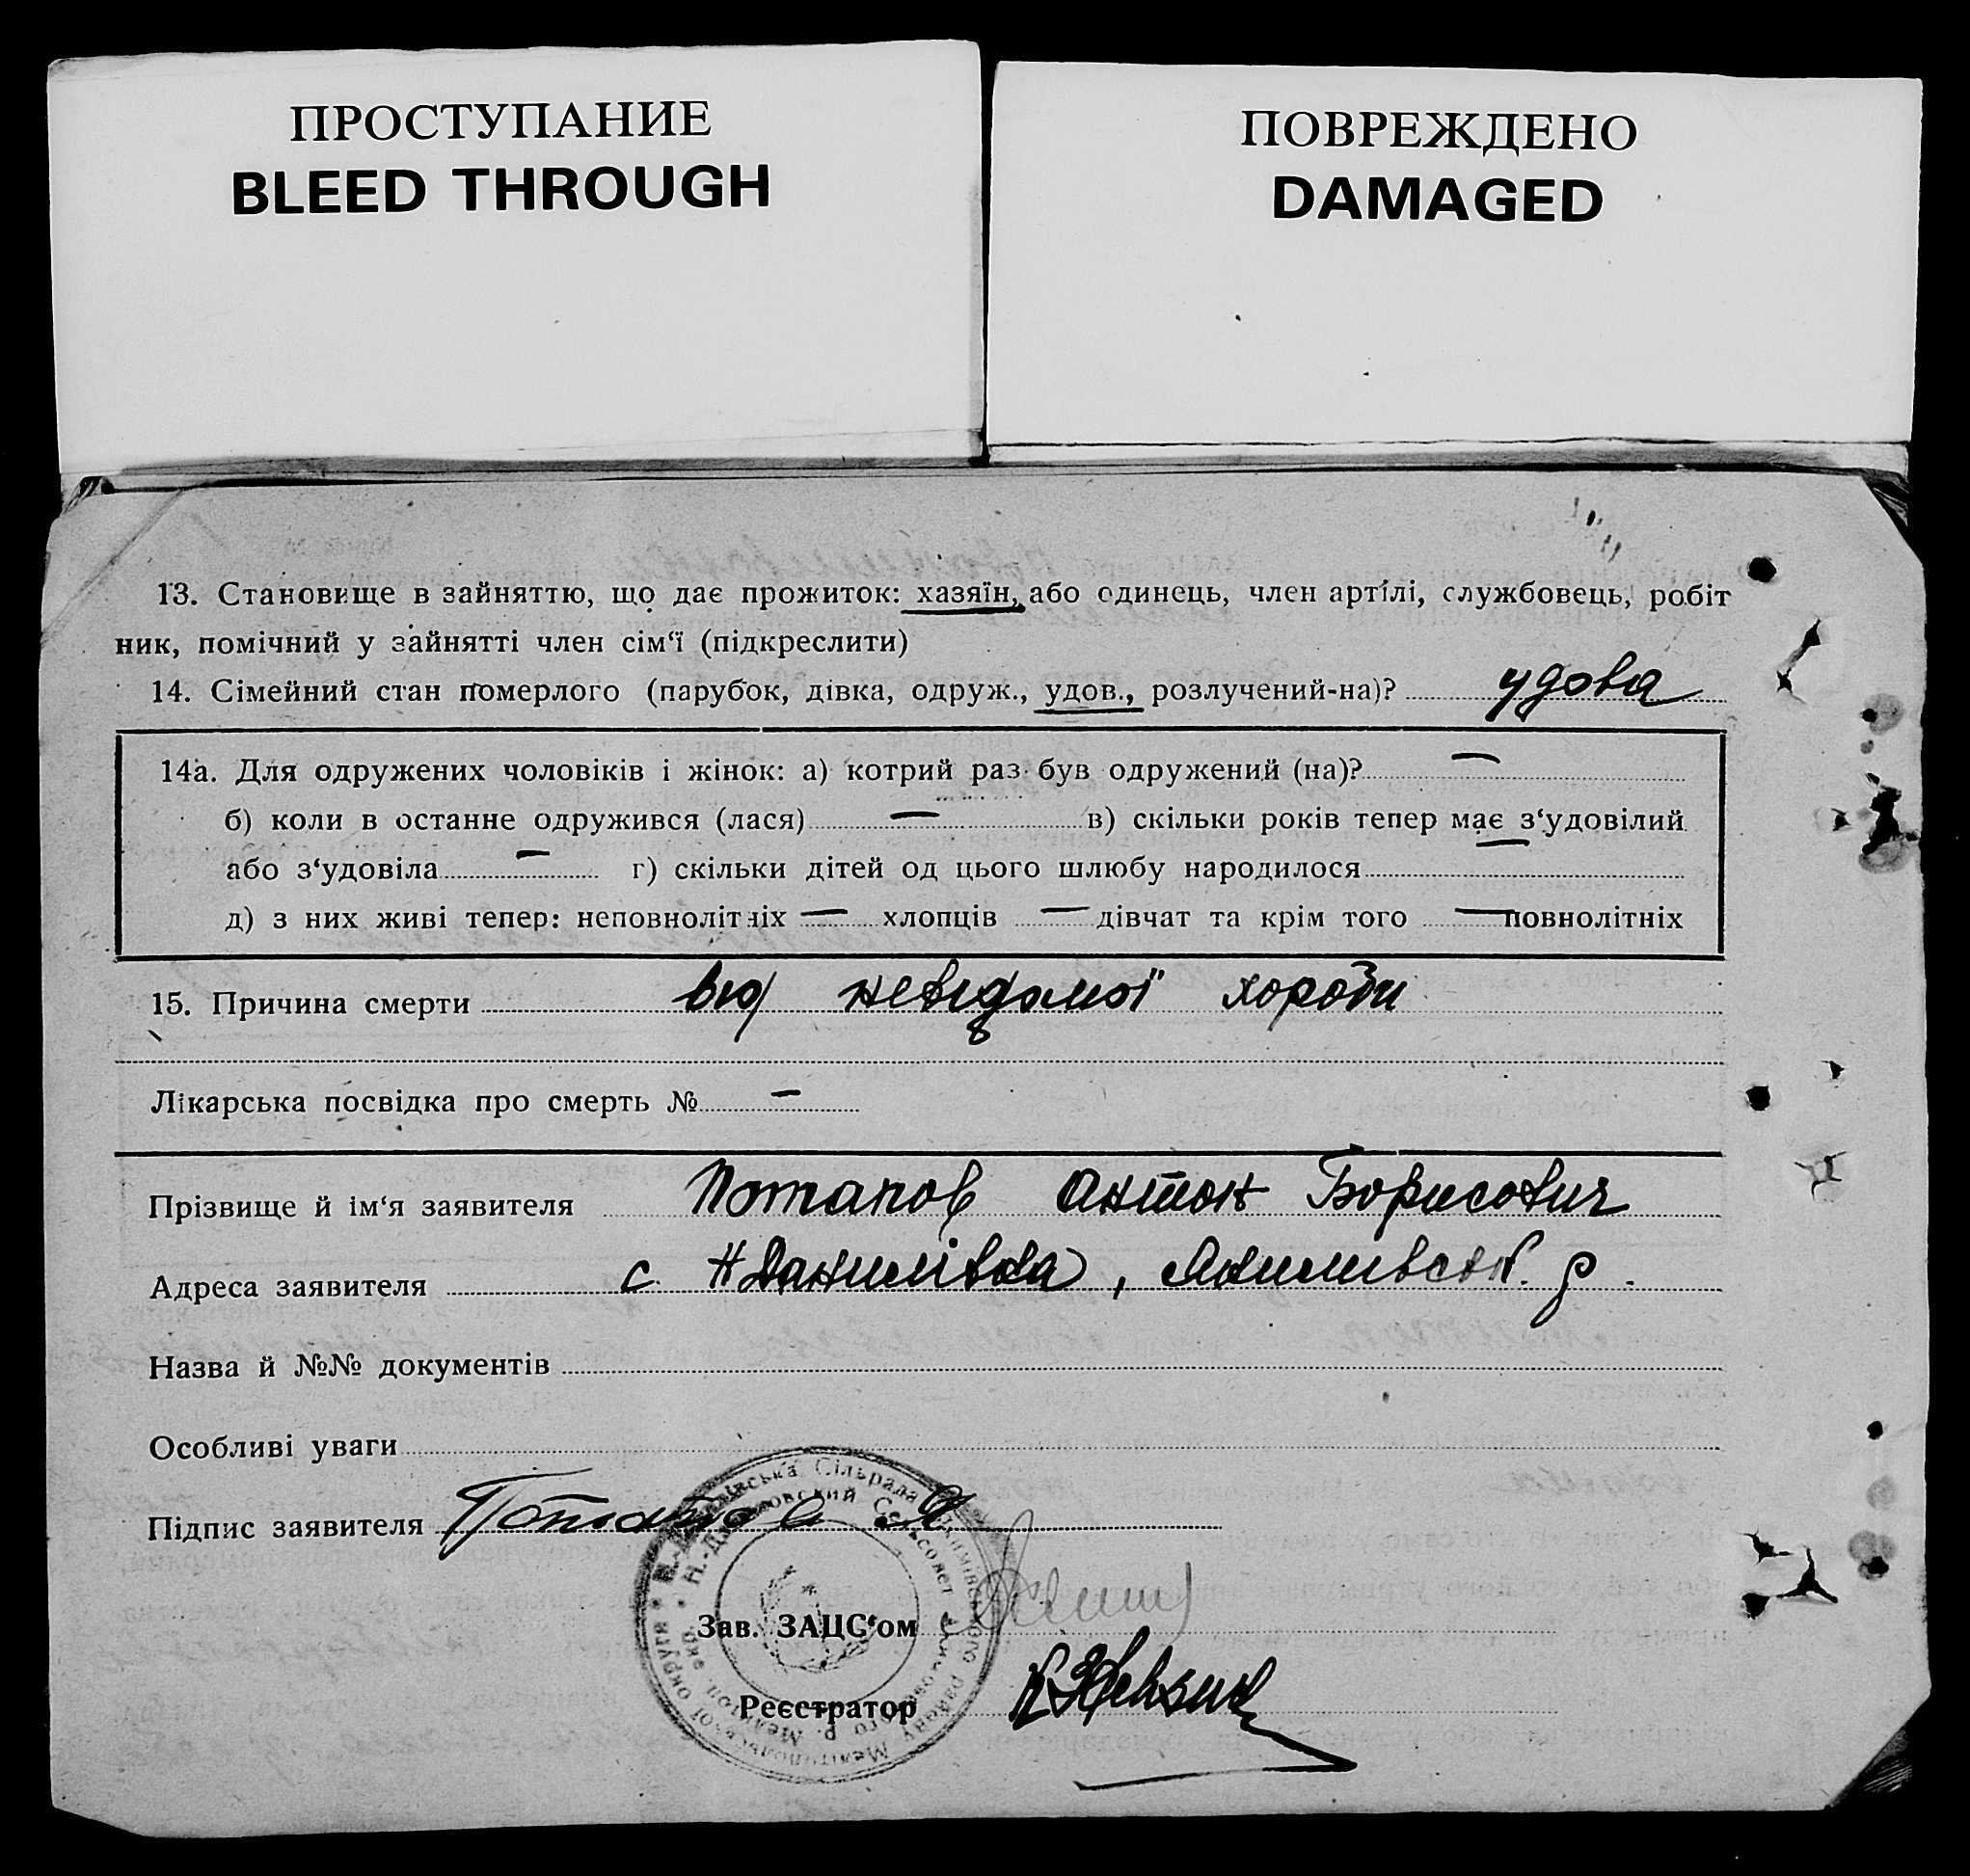 ПРОСТУПАНИЕ
BLEED THROUGH
ПОВРЕЖДЕНО
DAMAGED
13. Становище в зайняттю, що дає прожиток: хазяїн, або одинець, член артілі, службовець, робіт
ник, помічний у зайнятті член сім‘ї (підкреслити)
14. Сімейний стан померлого (парубок, дівка, одруж., удов., розлучений-на)? удова
14а. Для одружених чоловіків і жінок: а) котрий раз був одружений (на)? —
б) коли в останне одружився (лася) — в) скільки років тепер має з‘удовілий
або з‘удовіла — г) скільки дітей од цього шлюбу народилося —
д) з них живі тепер: неповнолітніх — хлопців — дівчат та крім того — повнолітніх
15. Причина смерти від невідомої хороби
Лікарська посвідка про смерть № —
Прізвище й ім‘я заявителя Потапов Антон Борисович
Адреса заявителя с. Н Данилівка, Якимивськ. р.
Назва й №№ документів
Особливі уваги
Підпис заявителя Потапов А
Зав. ЗАЦС‘ом
Реєстратор